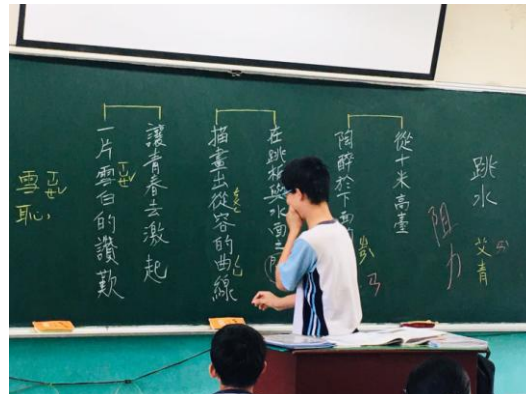 跳水
艾青
阻力
從十米高臺
陶醉於下面的
在跳板與水面之間
描畫出從容的曲線
讓青春去激起
一片雪白的讚歎
ㄒㄩㄝˇ
雪ㄒㄩㄝˇ
恥